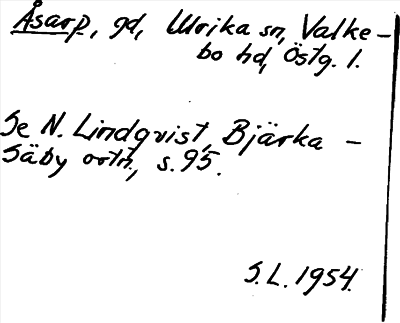 Åsarp, gd, Ulrika sn, Valke-
bo hd, Östg. l.
Se N. Lindqvist, Bjärka-
Säby ortn., s. 95.
S.L. 1954.